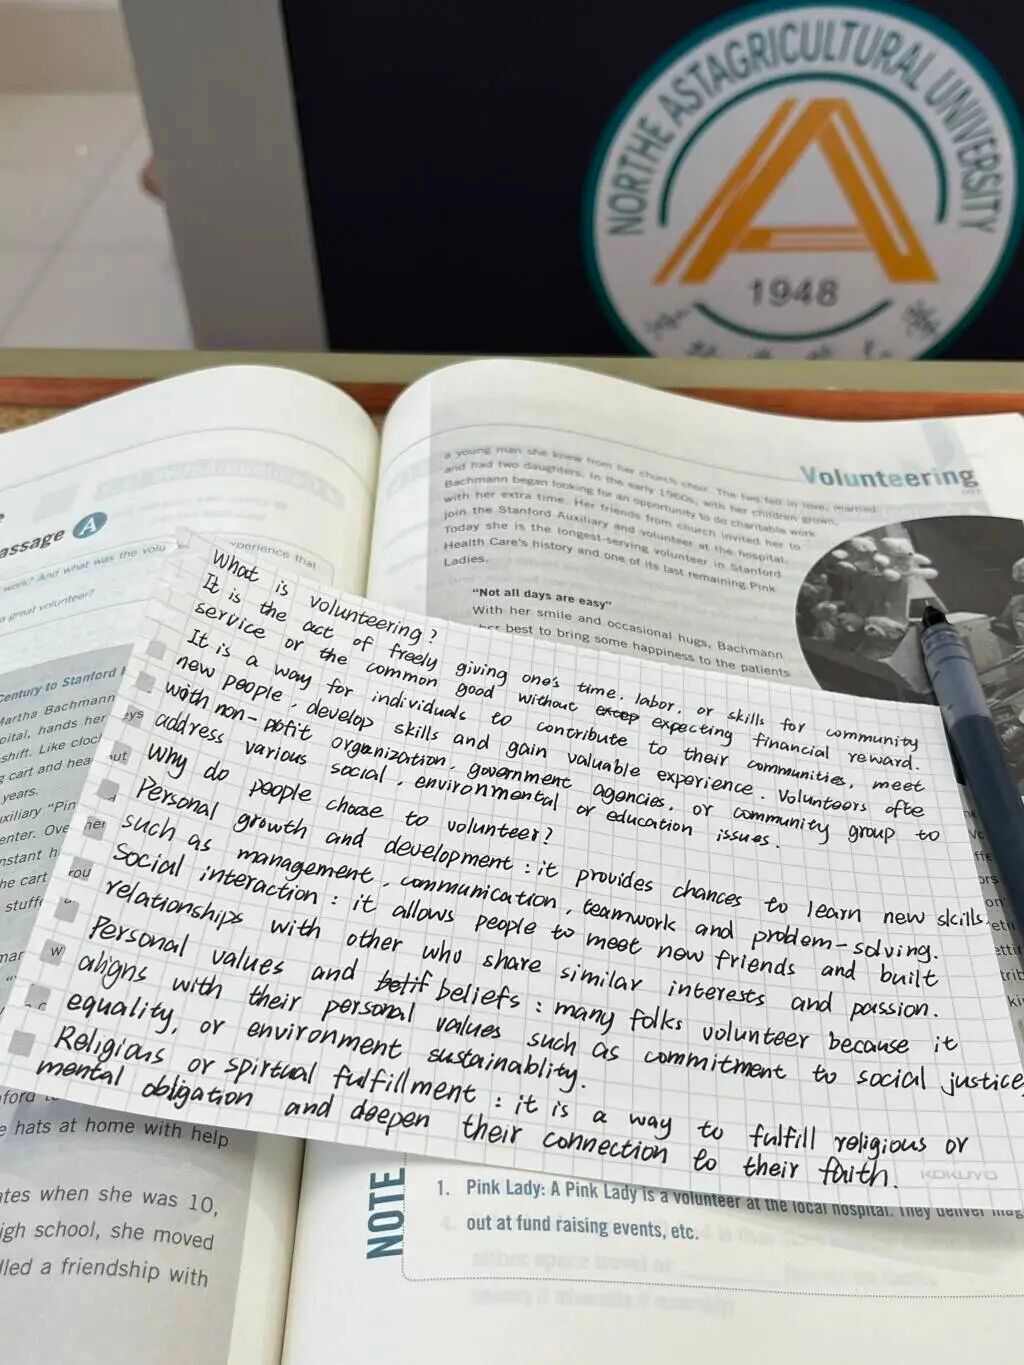 NORTHE ASTAGRICULTURAL UNIVERSITY
1948
assage A
work? And what was the volu
a great volunteer?
xperience that
Century to Stanford
Martha Bachmann
pital, hands her
shift. Like cloc
g cart and hea
years.
uxiliary "Pin
enter. Ove
nstant h
he cart
stuff
Volunteering
a young man she knew from her church choir. The two fell in love, married
and had two daughters. In the early 1960s, with her children grown,
Bachmann began looking for an opportunity to do charitable work
with her extra time. Her friends from church invited her to
join the Stanford Auxiliary and volunteer at the hospital.
Today she is the longest-serving volunteer in Stanford
Health Care's history and one of its last remaining Pink
Ladies.
"Not all days are easy"
With her smile and occasional hugs, Bachmann
her best to bring some happiness to the patients
What is volunteering?
It is the act of freely giving one's time, labor, or skills for community
service or the common good without excep expecting financial reward.
It is a way for individuals to contribute to their communities, meet
new people, develop skills and gain valuable experience. Volunteers ofte
with non-pofit organization, government agencies, or community group to
address various social, environmental or education issues.
Why do people choose to volunteer?
Personal growth and development: it provides chances to learn new skills
such as management, communication, teamwork and problem-solving.
Social interaction: it allows people to meet new friends and built
relationships with other who share similar interests and passion.
Personal values and belif beliefs: many folks volunteer because it
aligns with their personal values such as commitment to social justice,
equality, or environment sustainablity.
Religious or spirtual fulfillment: it is a way to fulfill religious or
mental obligation and deepen their connection to their faith.
KOKUYO
e hats at home with help
ates when she was 10,
igh school, she moved
lled a friendship with
NOTE
1. Pink Lady: A Pink Lady is a volunteer at the local hospital. They deliver mag
out at fund raising events, etc.